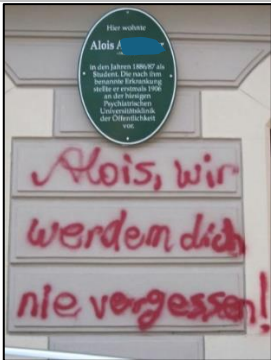 Hier wohnte
Alois A
in den Jahren 1886/87 als
Student. Die nach ihm
benannte Erkrankung
stellte er erstmals 1906
an der hiesigen
Psychiatrischen
Universitätsklinik
der Öffentlichkeit
vor.
Alois, wir
werdem dich
nie vergessen!